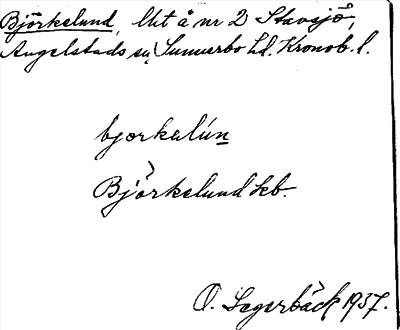 Björkelund, lht å nr 2 Stavsjö,
Angelstads sn, Sunnerbo hd. Kronob. l.
bjorkalún
Björkelund kb.
O. Segerbäck 1937.